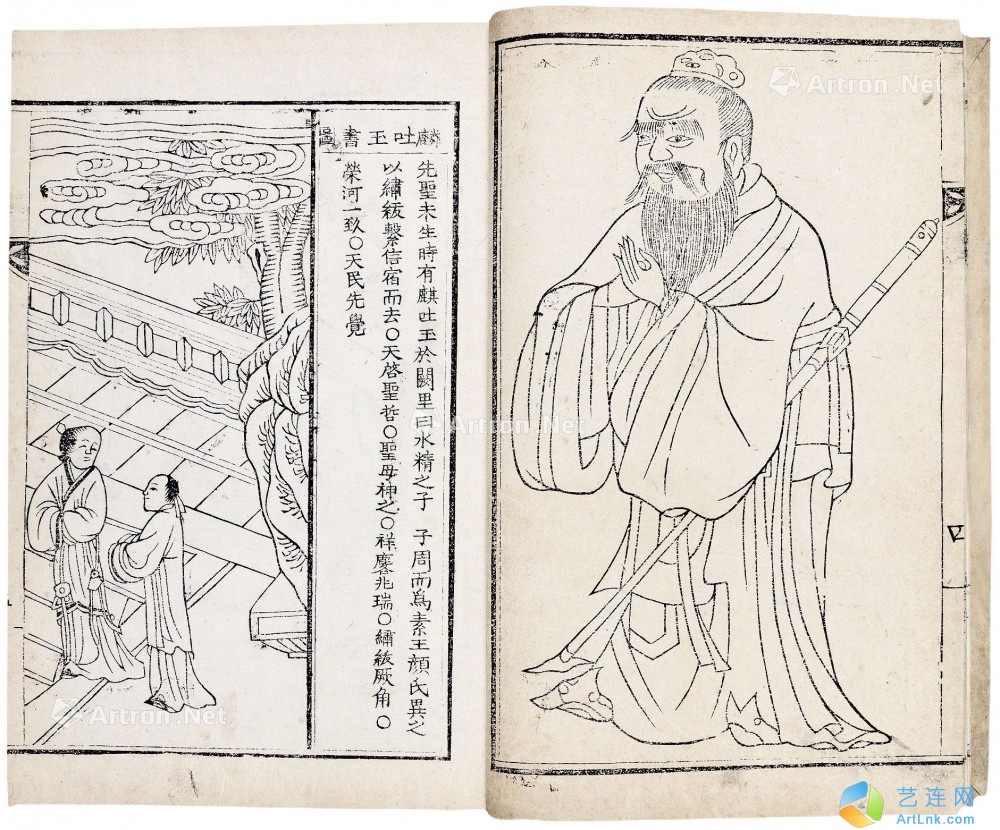 麟吐玉書圖
先聖未生時有麒吐玉於闕里曰水精之子 子周而爲素王顔氏異之
以繡紱繫信宿而去○天啓聖哲○聖母神之○祥麐兆瑞○繡紱厥角○
榮河一致○天民先覺
Artron.Net
Artron.Net
Artron.Net
Artron.Net
Artron.Net
艺连网
ArtLnk.com